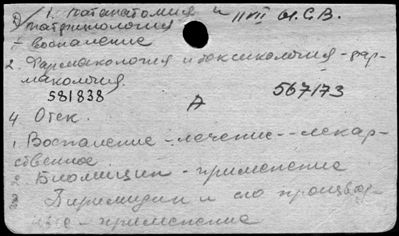 1. патанатомия и
патфизиология
- воспаление
II VII М.С.В.
2. Фармакология и токсикология - фар-
макология.
581838
А
567173
4 Отек.
1. Воспаление - лечение - лекар-
ственное.
Биомицин - применение
Пиримидин и его производ-
ные - применение